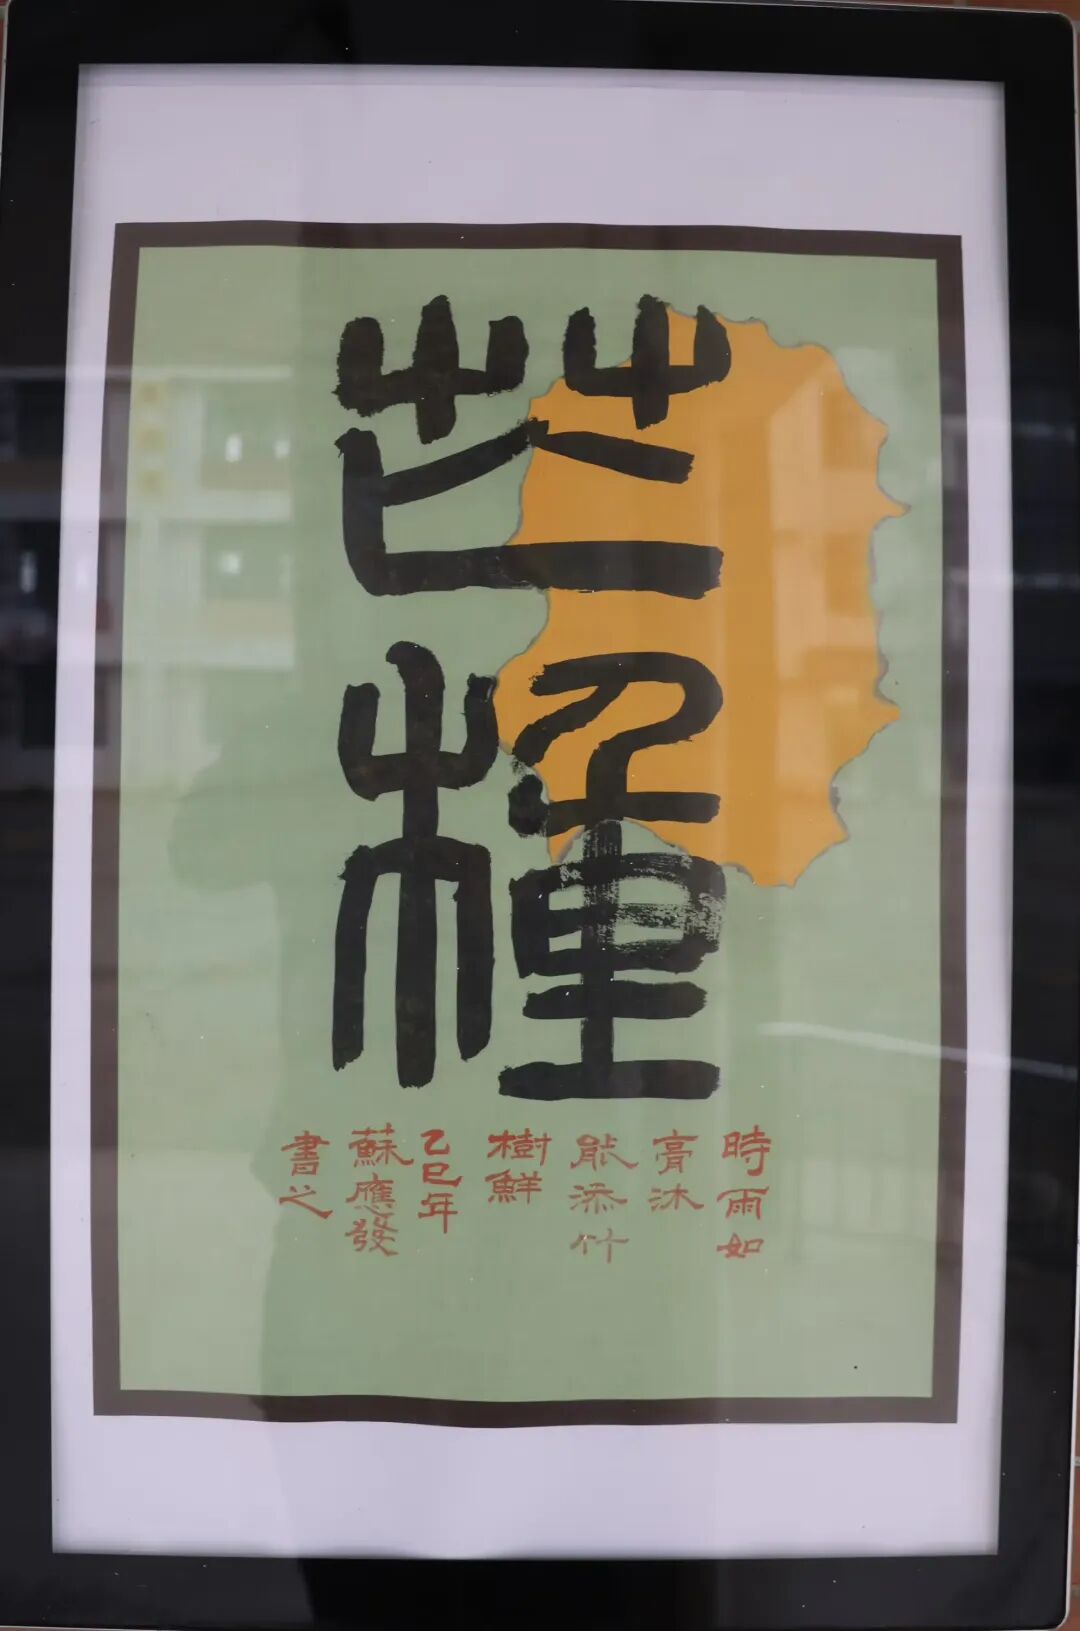 芒種
時雨如
膏沐
能添竹
樹鮮
乙巳年
蘇應發
書之